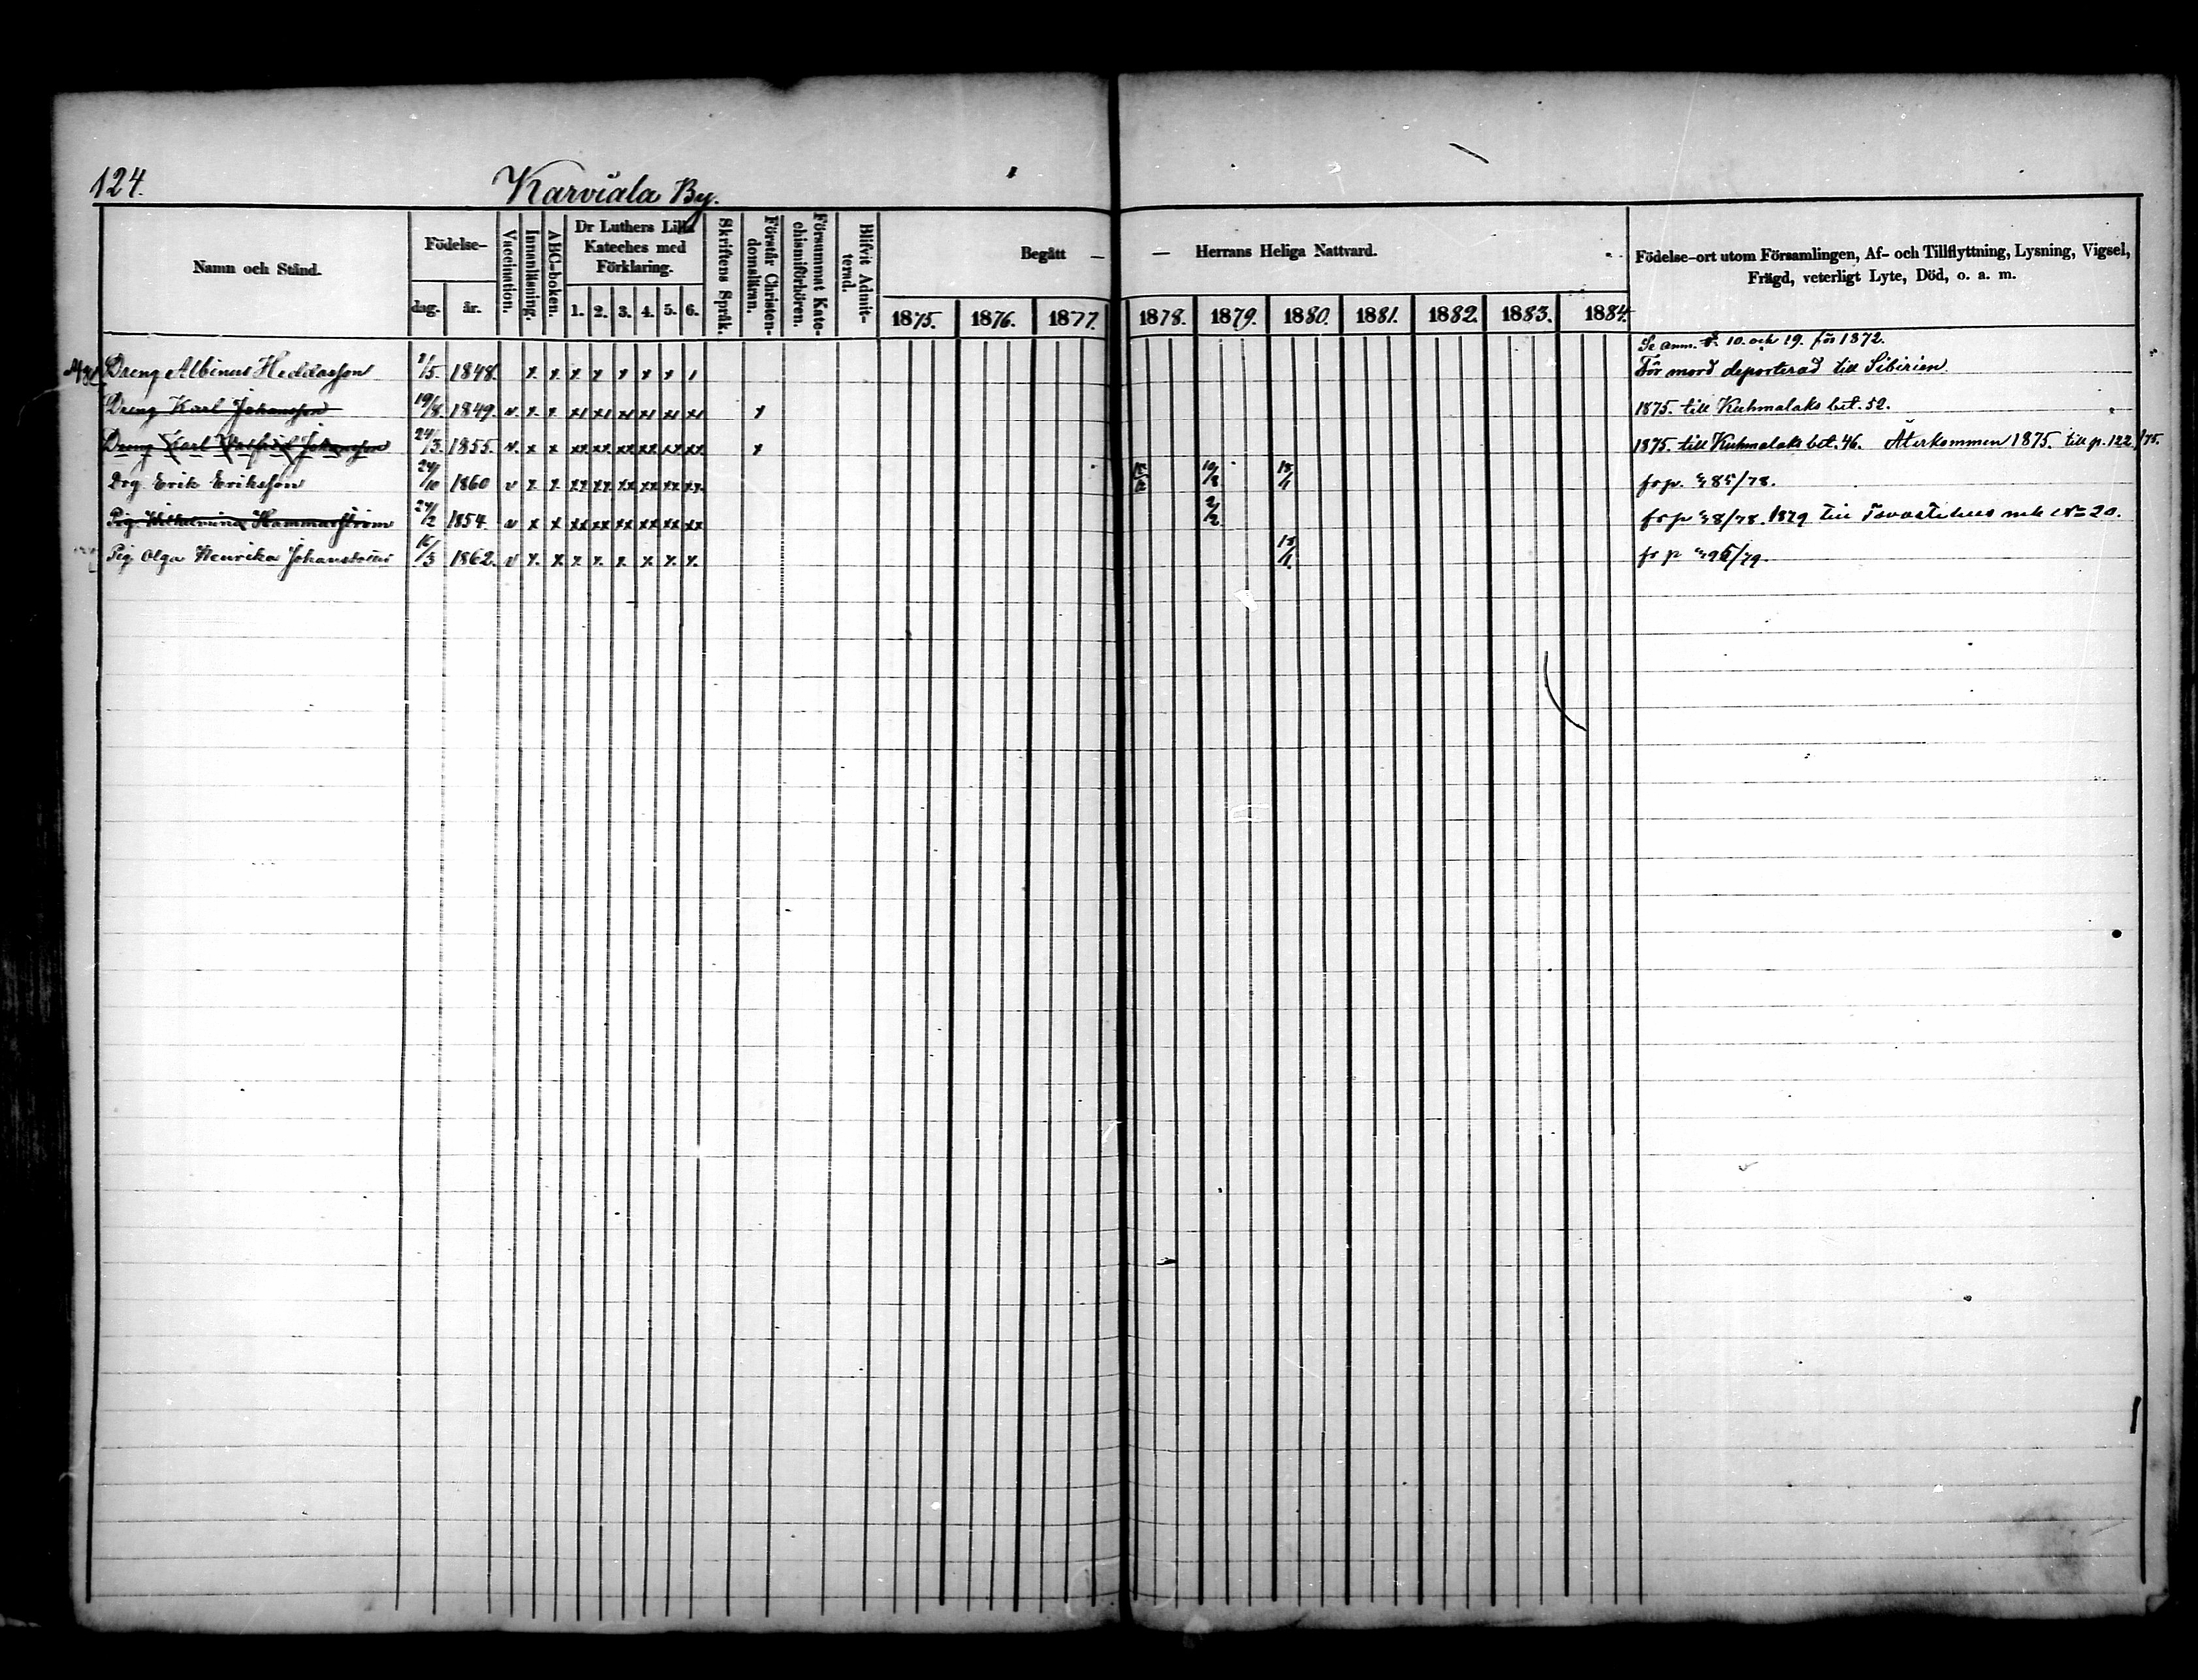 124.
Karviala By.
Namn och Stånd.
Födelse-
dag.
år.
Vaccination.
Innanläsning.
ABC-boken.
Dr Luthers Lilla
Kateches med
Förklaring.
1. 2. 3. 4. 5. 6.
Skriftens Språk.
Förstår Christen-
domsläran.
Försummat Kate-
chismiförhören.
Blifvit Admit-
terad.
Begått —
— Herrans Heliga Nattvard.
1875. 1876. 1877. 1878. 1879. 1880. 1881. 1882. 1883. 1884.
Födelse-ort utom Församlingen, Af- och Tillflyttning, Lysning, Vigsel,
Frägd, veterligt Lyte, Död, o. a. m.
Se anm. 10. och 19. för 1872.
Dreng Albinus Heddasson 1848. x x x x x x x För mord deporterad till Sibirien.
Dreng Karl Johansson 19/8. 1849. v. x x xx xx xx xx xx xx x 1875. till Kuhmalaks bet. 52.
Dreng Karl Johansson 24/3. 1855. v. x x xx xx xx xx xx xx x 1875. till Kuhmalaks bet. 46. Återkommen 1875. till p. 122/75.
Drg Erik Eriksson 24/10 1860 v x x xx xx xx xx xx xx fr p. 85/78.
Pig. Wilhelmina Hammarström 24/2 1854. v x x xx xx xx xx xx xx 2/2 fr p 8/78. 1879 till Tavastehus mb No 20.
Pig. Olga Henrika 1862. v x. x x x. x. x. x. x. fr p 95/79.